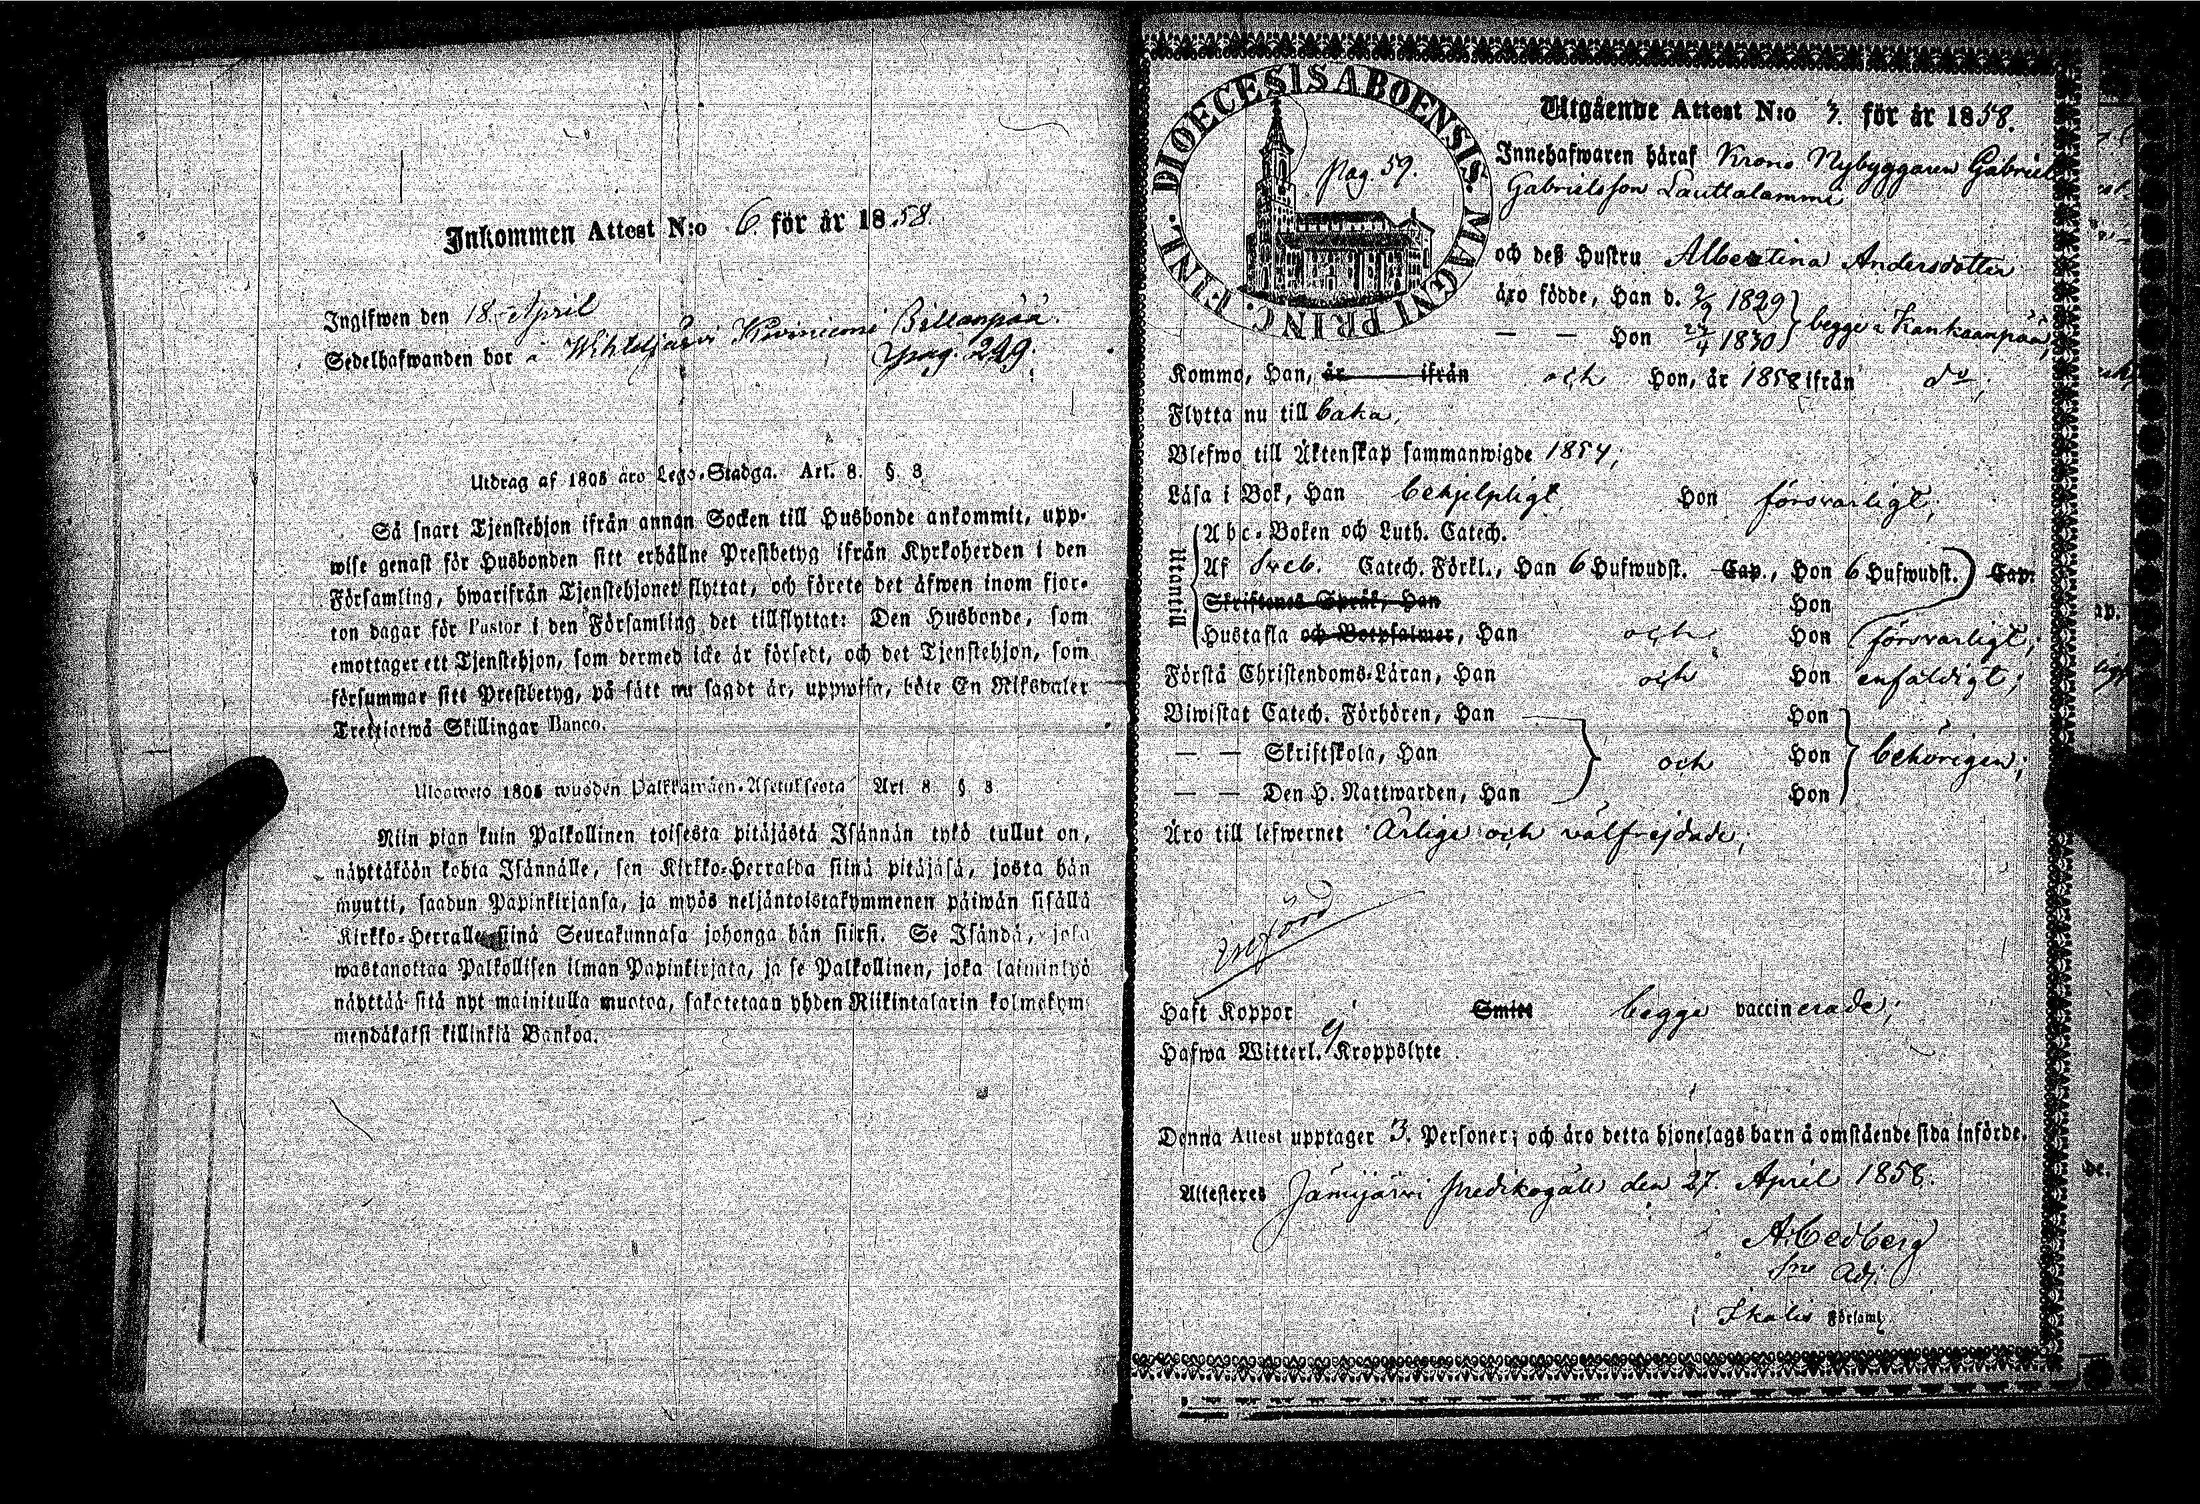 Inkommen Attest N:o 6. för år 1858.
Ingifwen den 18 April
Sedelhafwanden bor
pag. 249.
Utdrag af 1805 års Lego-Stadga. Art. 8. §. 8
Så snart Tjenstehjon ifrån annan Socken till Husbonde ankommit, upp-
wise genast för Husbonden sitt erhållne Prestbetyg ifrån Kyrkoherden i den
Församling, hwarifrån Tjenstehjonet flyttat, och förete det äfwen inom fjor-
ton dagar för Pastor i den Församling det tillflyttat: Den Husbonde, som
emottager ett Tjenstehjon, som dermed icke är försedt, och det Tjenstehjon, som
försummar sitt Prestbetyg, på sätt nu sagdt är, uppwisa, böte En Riksdaler
Trettiotwå Skillingar Banco.
Ulosweto 1805 wuoden Palkkawäen-Asetuksesta Art. 8. §. 8.
Niin pian kuin Palkollinen toisesta pitäjästä Isännän tykö tullut on,
näyttäköön kohta Isännälle, sen Kirkko-Herralda siinä pitäjäsä, josta hän
muutti, saadun Papinkirjansa, ja myös neljäntoistakymmenen päiwän sisällä
Kirkko-Herralle siinä Seurakunnasa johonga hän siirsi. Se Isändä, joka
wastanottaa Palkollisen ilman Papinkirjata, ja se Palkollinen, joka laiminlyö
näyttää sitä nyt mainitulla muotoa, sakotetaan yhden Riikintalarin kolmekym
mendäkaksi killinkiä Bankoa.
DIOECESIS ABOENSIS. MAGNI PRINC. FINL.
pag 59.
Utgående Attest N:o 7. för år 1858.
Innehafwaren häraf Krono Nybyggaren Gabriel
Gabrielsson Lauttalammi
och deß Hustru Albertina Andersdotter
äro födde, Han d. 2/9 1829 } begge i Kankaanpää;
— — Hon 27/4 1830
Kommo, Han, år ifrån och Hon, år 1858 ifrån do;
Flytta nu till baka;
Blefwo till Äktenskap sammanwigde 1854;
Läsa i Bok, Han behjelpligt Hon försvarligt;
Utantill
Abc-Boken och Luth. Catech.
Af Sveb. Catech. Förkl., Han 6 Hufwudst. Cap., Hon 6 Hufwudst. Cap.
Skriftenes Språk, Han Hon
Hustafla och Botpsalmer, Han och Hon försvarligt;
Förstå Christendoms-Läran, Han och Hon enfaldigt;
Biwistat Catech. Förhören, Han Hon
— — Skriftskola, Han och Hon behörigen;
— — Den H. Nattwarden, Han Hon
Äro till lefwernet Ärlige och välfrejdade;
Haft Koppor Smitt begge vaccinerade;
Hafwa Witterl. ej Kroppslyte
Denna Attest upptager 3. Personer; och äro detta hjonelags barn å omstående sida införde.
Attesteres Jämijärvi predikogäll den 27. April 1858.
A. Cedberg
Adj.
Ikalis Församl.